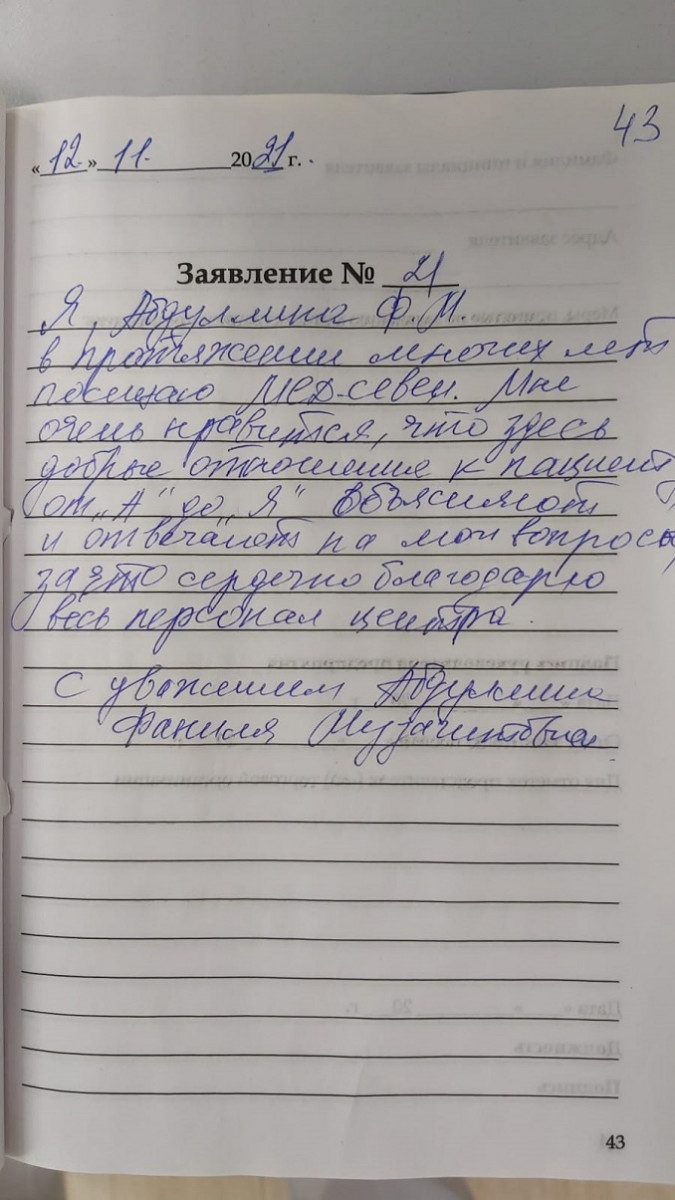 43
« 12. » 11. 2021 г.
Заявление № 21
Я, Абдуллина Ф.М.
в протяжении многих лет
посещаю МЕД-севен. Мне
очень нравится, что здесь
добрые отношение к пациент
от „А" до „Я" объясняют
и отвечают на мои вопросы,
за это сердечно благодарю
весь персонал центра.
С уважением Абдуллина
Фаниля
43